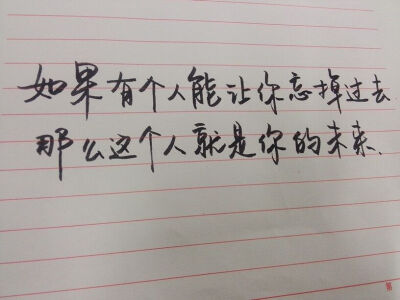 如果有个人能让你忘掉过去
那么这个人就是你的未来.
第